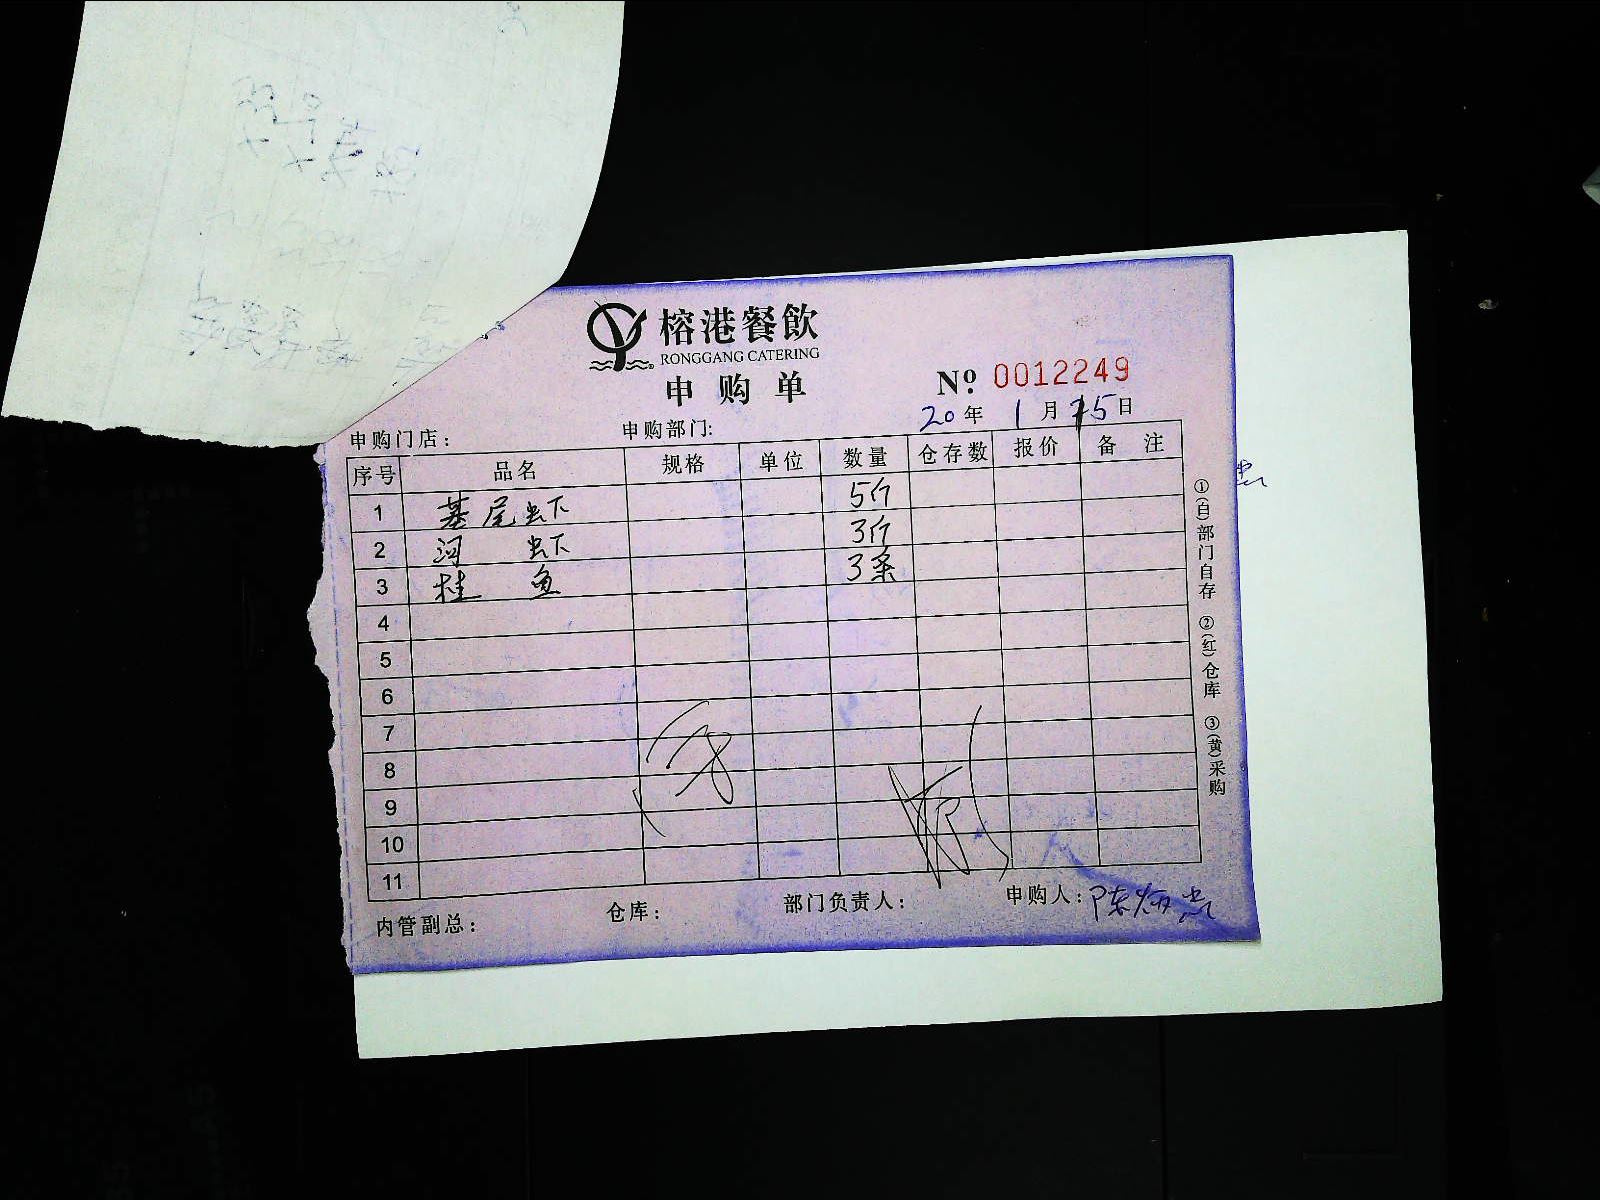 榕港餐飲
RONGGANG CATERING
申购单
Nº 0012249
20年 1月 15日
申购门店: 申购部门:
序号 品名 规格 单位 数量 仓存数 报价 备注
1 基尾虾 5斤
2 河虾 3斤
3 桂鱼 3条
4
5
6
7
8
9
10
11
内管副总: 仓库: 部门负责人: 申购人: 陈炳忠
①(自)部门自存 ②(红)仓库 ③(黄)采购